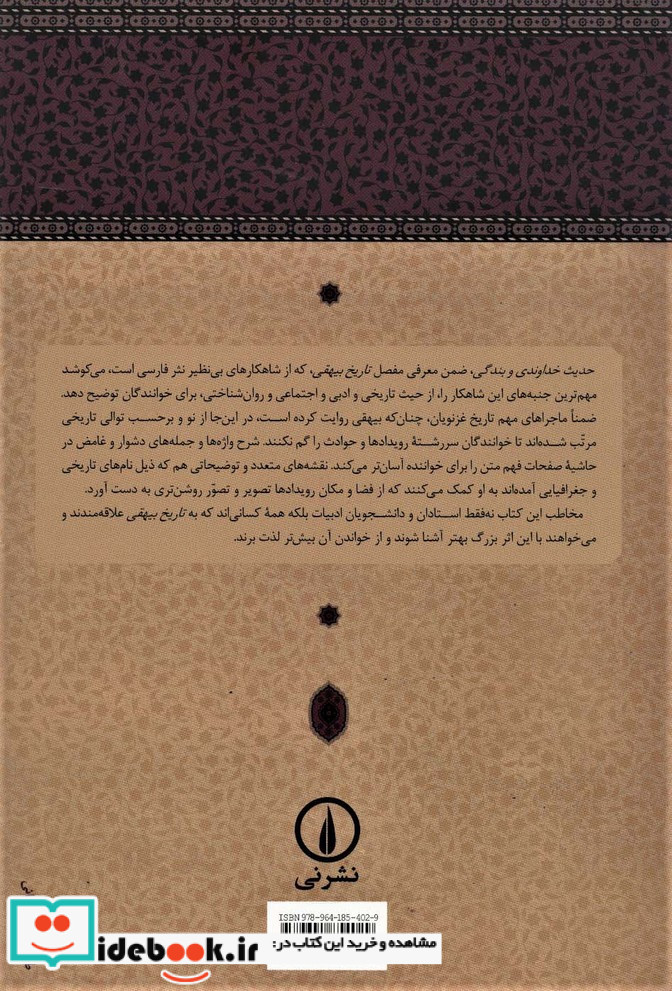 حدیث خداوندی و بندگی، ضمن معرفی مفصل تاریخ بیهقی، که از شاهکارهای بی‌نظیر نثر فارسی است، می‌کوشد
مهم‌ترین جنبه‌های این شاهکار را، از حیث تاریخی و ادبی و اجتماعی و روان‌شناختی، برای خوانندگان توضیح دهد.
ضمناً ماجراهای مهم تاریخ غزنویان، چنان‌که بیهقی روایت کرده است، در این‌جا از نو و برحسب توالی تاریخی
مرتّب شده‌اند تا خوانندگان سررشتهٔ رویدادها و حوادث را گم نکنند. شرح واژه‌ها و جمله‌های دشوار و غامض در
حاشیهٔ صفحات فهم متن را برای خواننده آسان‌تر می‌کند. نقشه‌های متعدد و توضیحاتی هم که ذیل نام‌های تاریخی
و جغرافیایی آمده‌اند به او کمک می‌کنند که از فضا و مکان رویدادها تصویر و تصوّر روشن‌تری به دست آورد.
مخاطب این کتاب نه‌فقط استادان و دانشجویان ادبیات بلکه همهٔ کسانی‌اند که به تاریخ بیهقی علاقه‌مندند و
می‌خواهند با این اثر بزرگ بهتر آشنا شوند و از خواندن آن بیش‌تر لذت برند.
نشرنی
ISBN 978-964-185-402-9
مشاهده و خرید این کتاب در:
idebook.ir